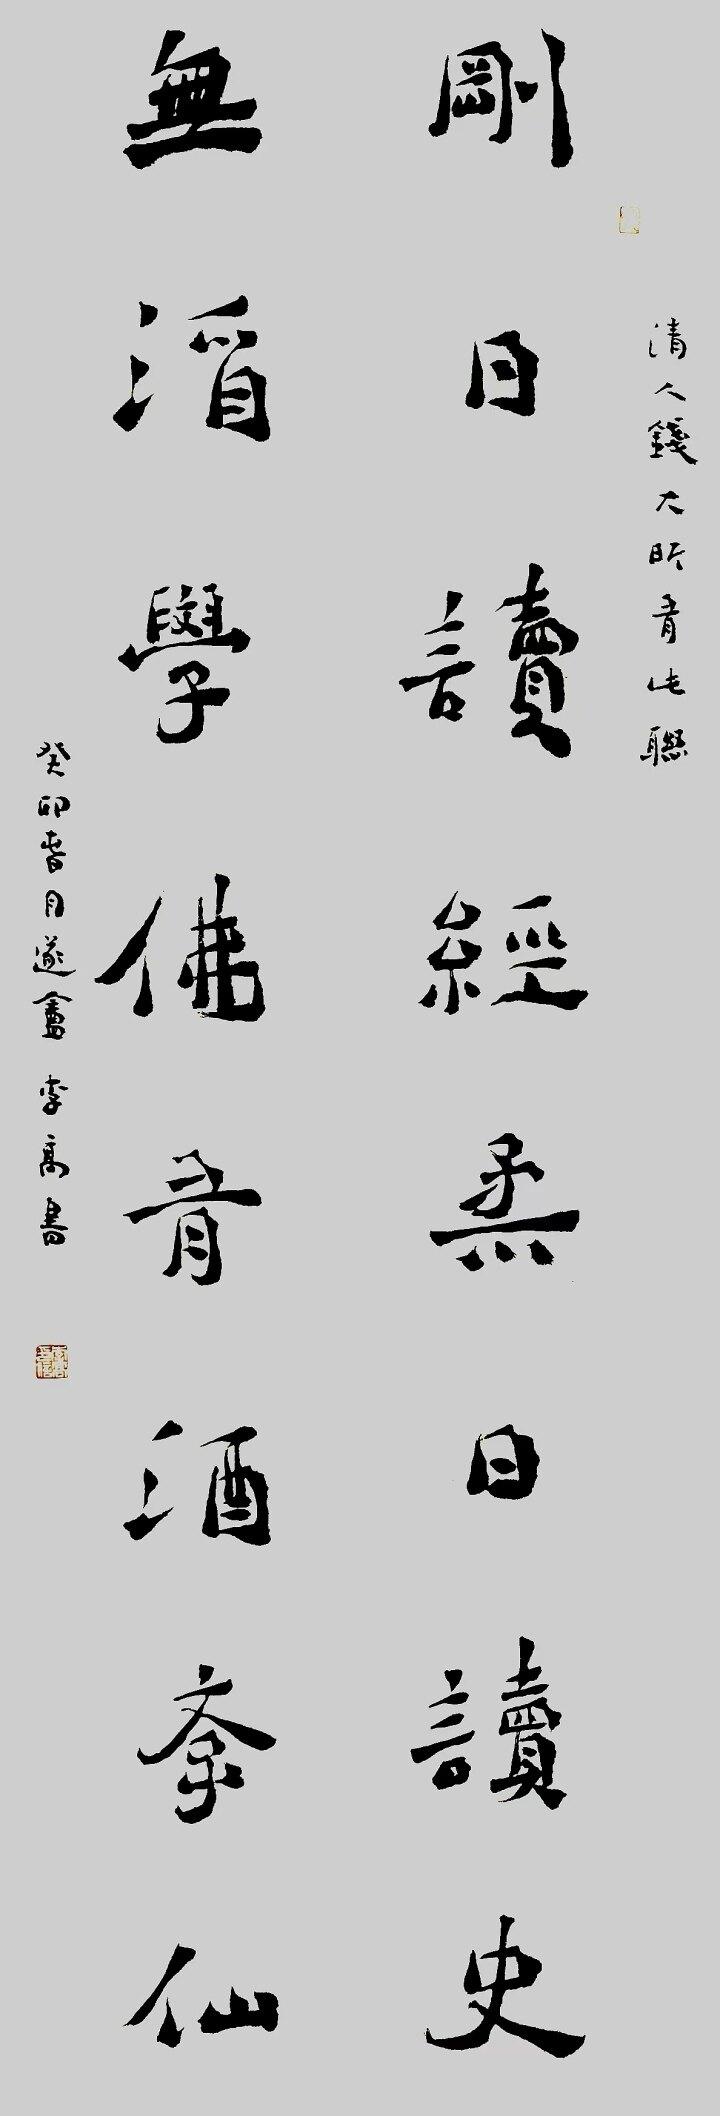 清人錢大昕有此聯
剛日讀經柔日讀史
無酒學佛有酒斈仙
癸卯春月遂盦李高書